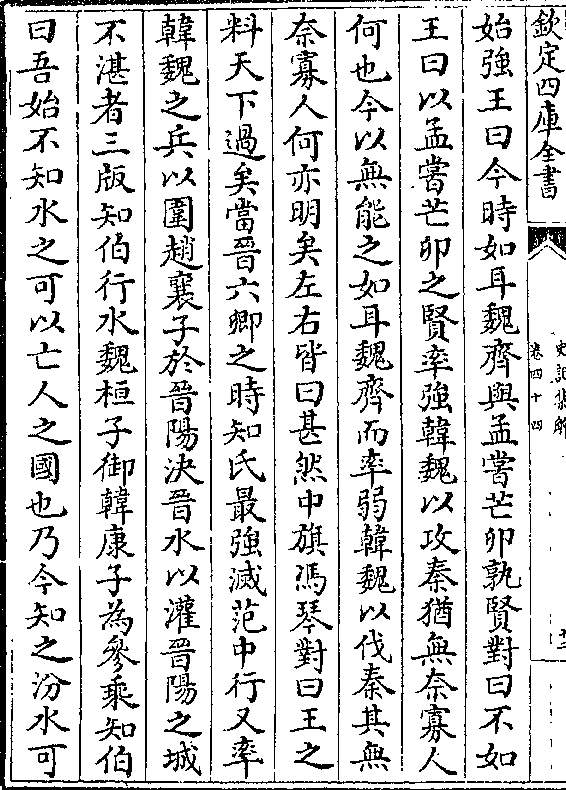 欽定四庫全書
史記集解
卷四十四
始強王曰今時如耳魏齊與孟嘗芒卯孰賢對曰不如
王曰以孟嘗芒卯之賢率強韓魏以攻秦猶無奈寡人
何也今以無能之如耳魏齊而率弱韓魏以伐秦其無
奈寡人何亦明矣左右皆曰甚然中旗馮琴對曰王之
料天下過矣當晉六卿之時知氏最強滅范中行又率
韓魏之兵以圍趙襄子於晉陽決晉水以灌晉陽之城
不湛者三版知伯行水魏桓子御韓康子為參乘知伯
曰吾始不知水之可以亡人之國也乃今知之汾水可